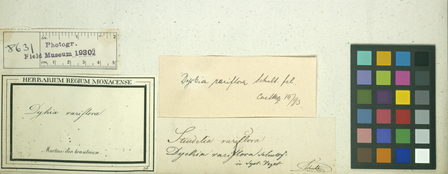 8631
Photogr.
Field Museum 1930
HERBARIUM REGIUM MONACENSE
Dyckia rariflora
Martius iter brasiliense
Dyckia rariflora Schult fil
Stendelia rariflora
Dyckia rariflora Schultes f
in Syst. Veget.